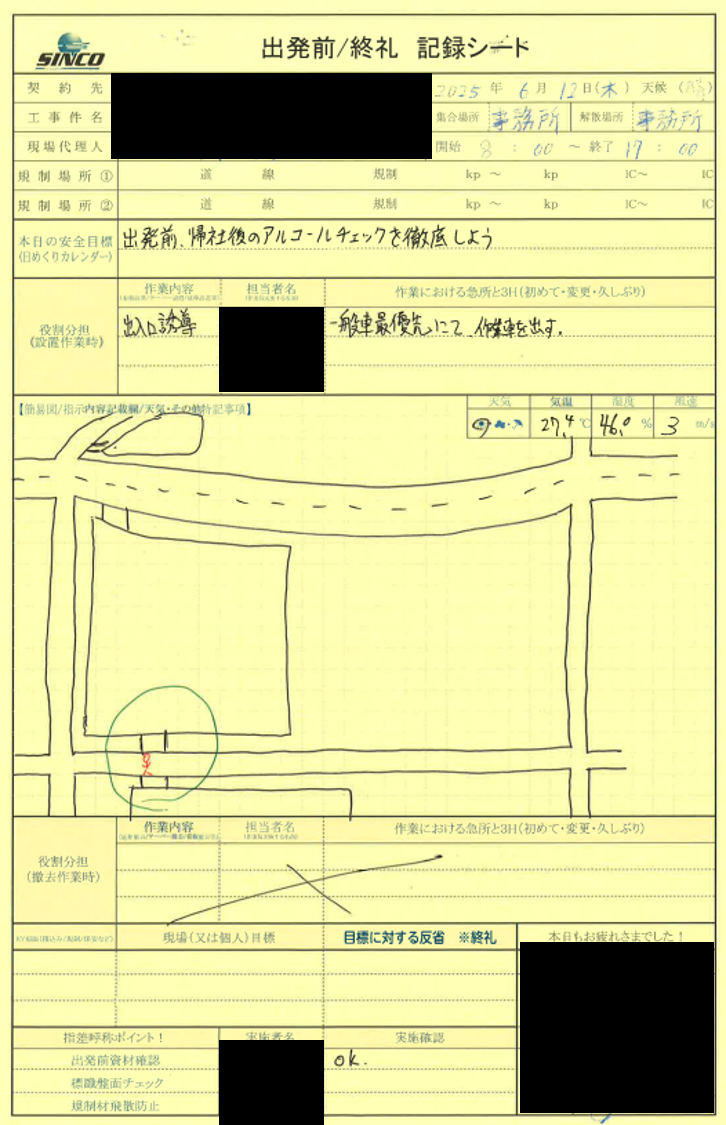 SINCO
出発前/終礼 記録シート
契約先 2025年 6月 12日(木) 天候( )
工事件名 集合場所 事務所 解散場所 事務所
現場代理人 開始 8:00 ～ 終了 17:00
規制場所① 道 線 規制 kp ～ kp IC～ IC
規制場所② 道 線 規制 kp ～ kp IC～ IC
本日の安全目標 出発前、帰社後のアルコールチェックを徹底しよう
(日めくりカレンダー)
作業内容 担当者名 作業における急所と3H(初めて・変更・久しぶり)
役割分担 出入口誘導 一般車最優先にて、作業車を出す。
(設置作業時)
【簡易図/指示内容記載欄/天気・その他特記事項】
天気 気温 湿度 風速
27.4℃ 46.0% 3 m/s
作業内容 担当者名 作業における急所と3H(初めて・変更・久しぶり)
役割分担
(撤去作業時)
現場(又は個人)目標 目標に対する反省 ※終礼 本日もお疲れさまでした！
指差呼称ポイント！ 実施者名 実施確認
出発前資材確認 ok.
標識盤面チェック
規制材飛散防止